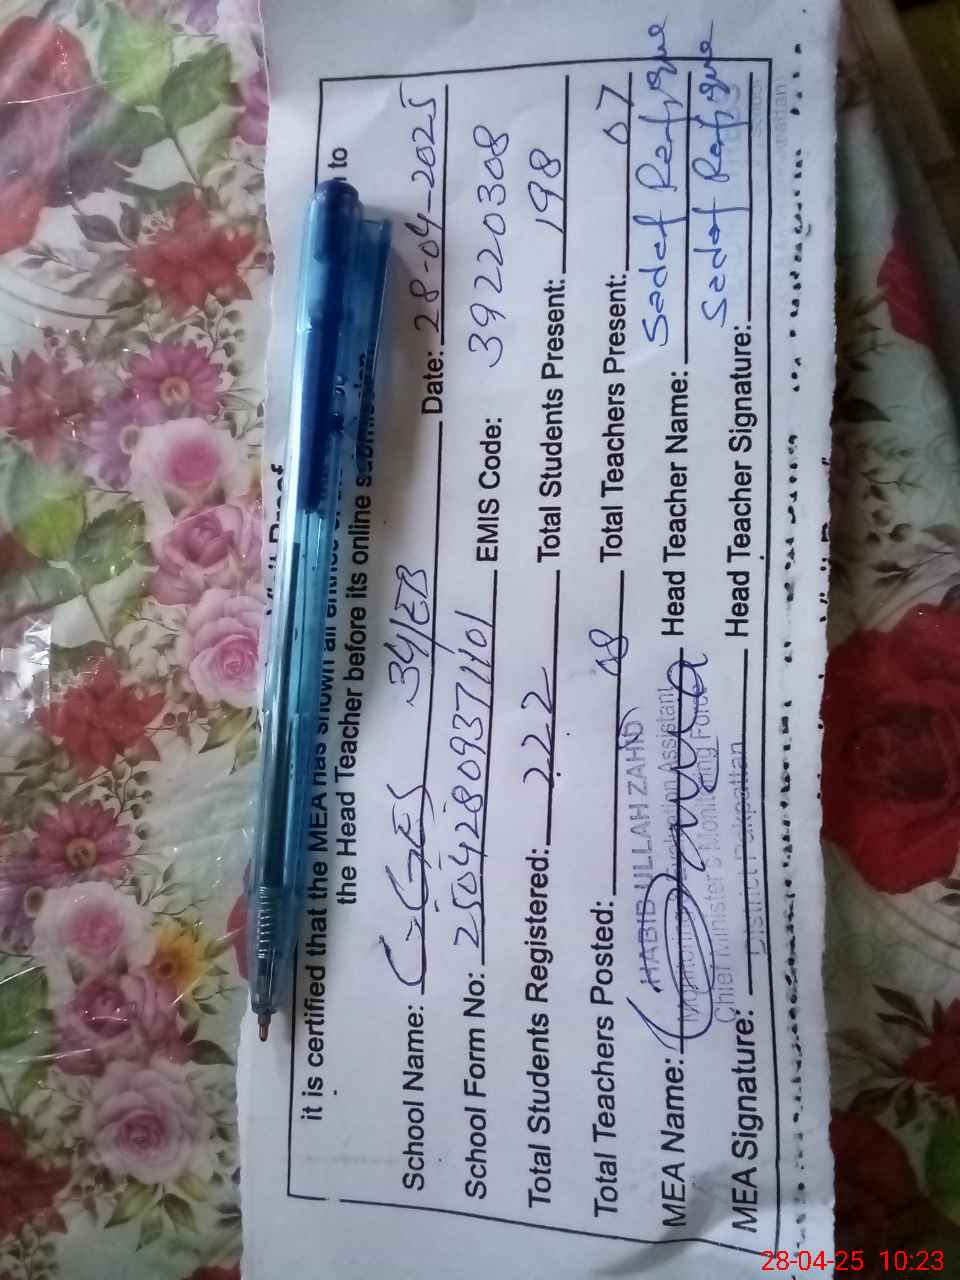 Visit Proof
it is certified that the MEA has shown all entries to
the Head Teacher before its online submission
School Name: GGES 34/EB Date: 28-04-2025
School Form No: 250428093711101 EMIS Code: 39220308
Total Students Registered: 222 Total Students Present: 198
Total Teachers Posted: 08 Total Teachers Present: 07
MEA Name: HABIB ULLAH ZAHID Head Teacher Name: Sadaf Rafique
Monitoring & Evaluation Assistant
Chief Minister's Monitoring Force
MEA Signature: District Pakpattan Head Teacher Signature: Sadaf Rafique
28-04-25 10:23